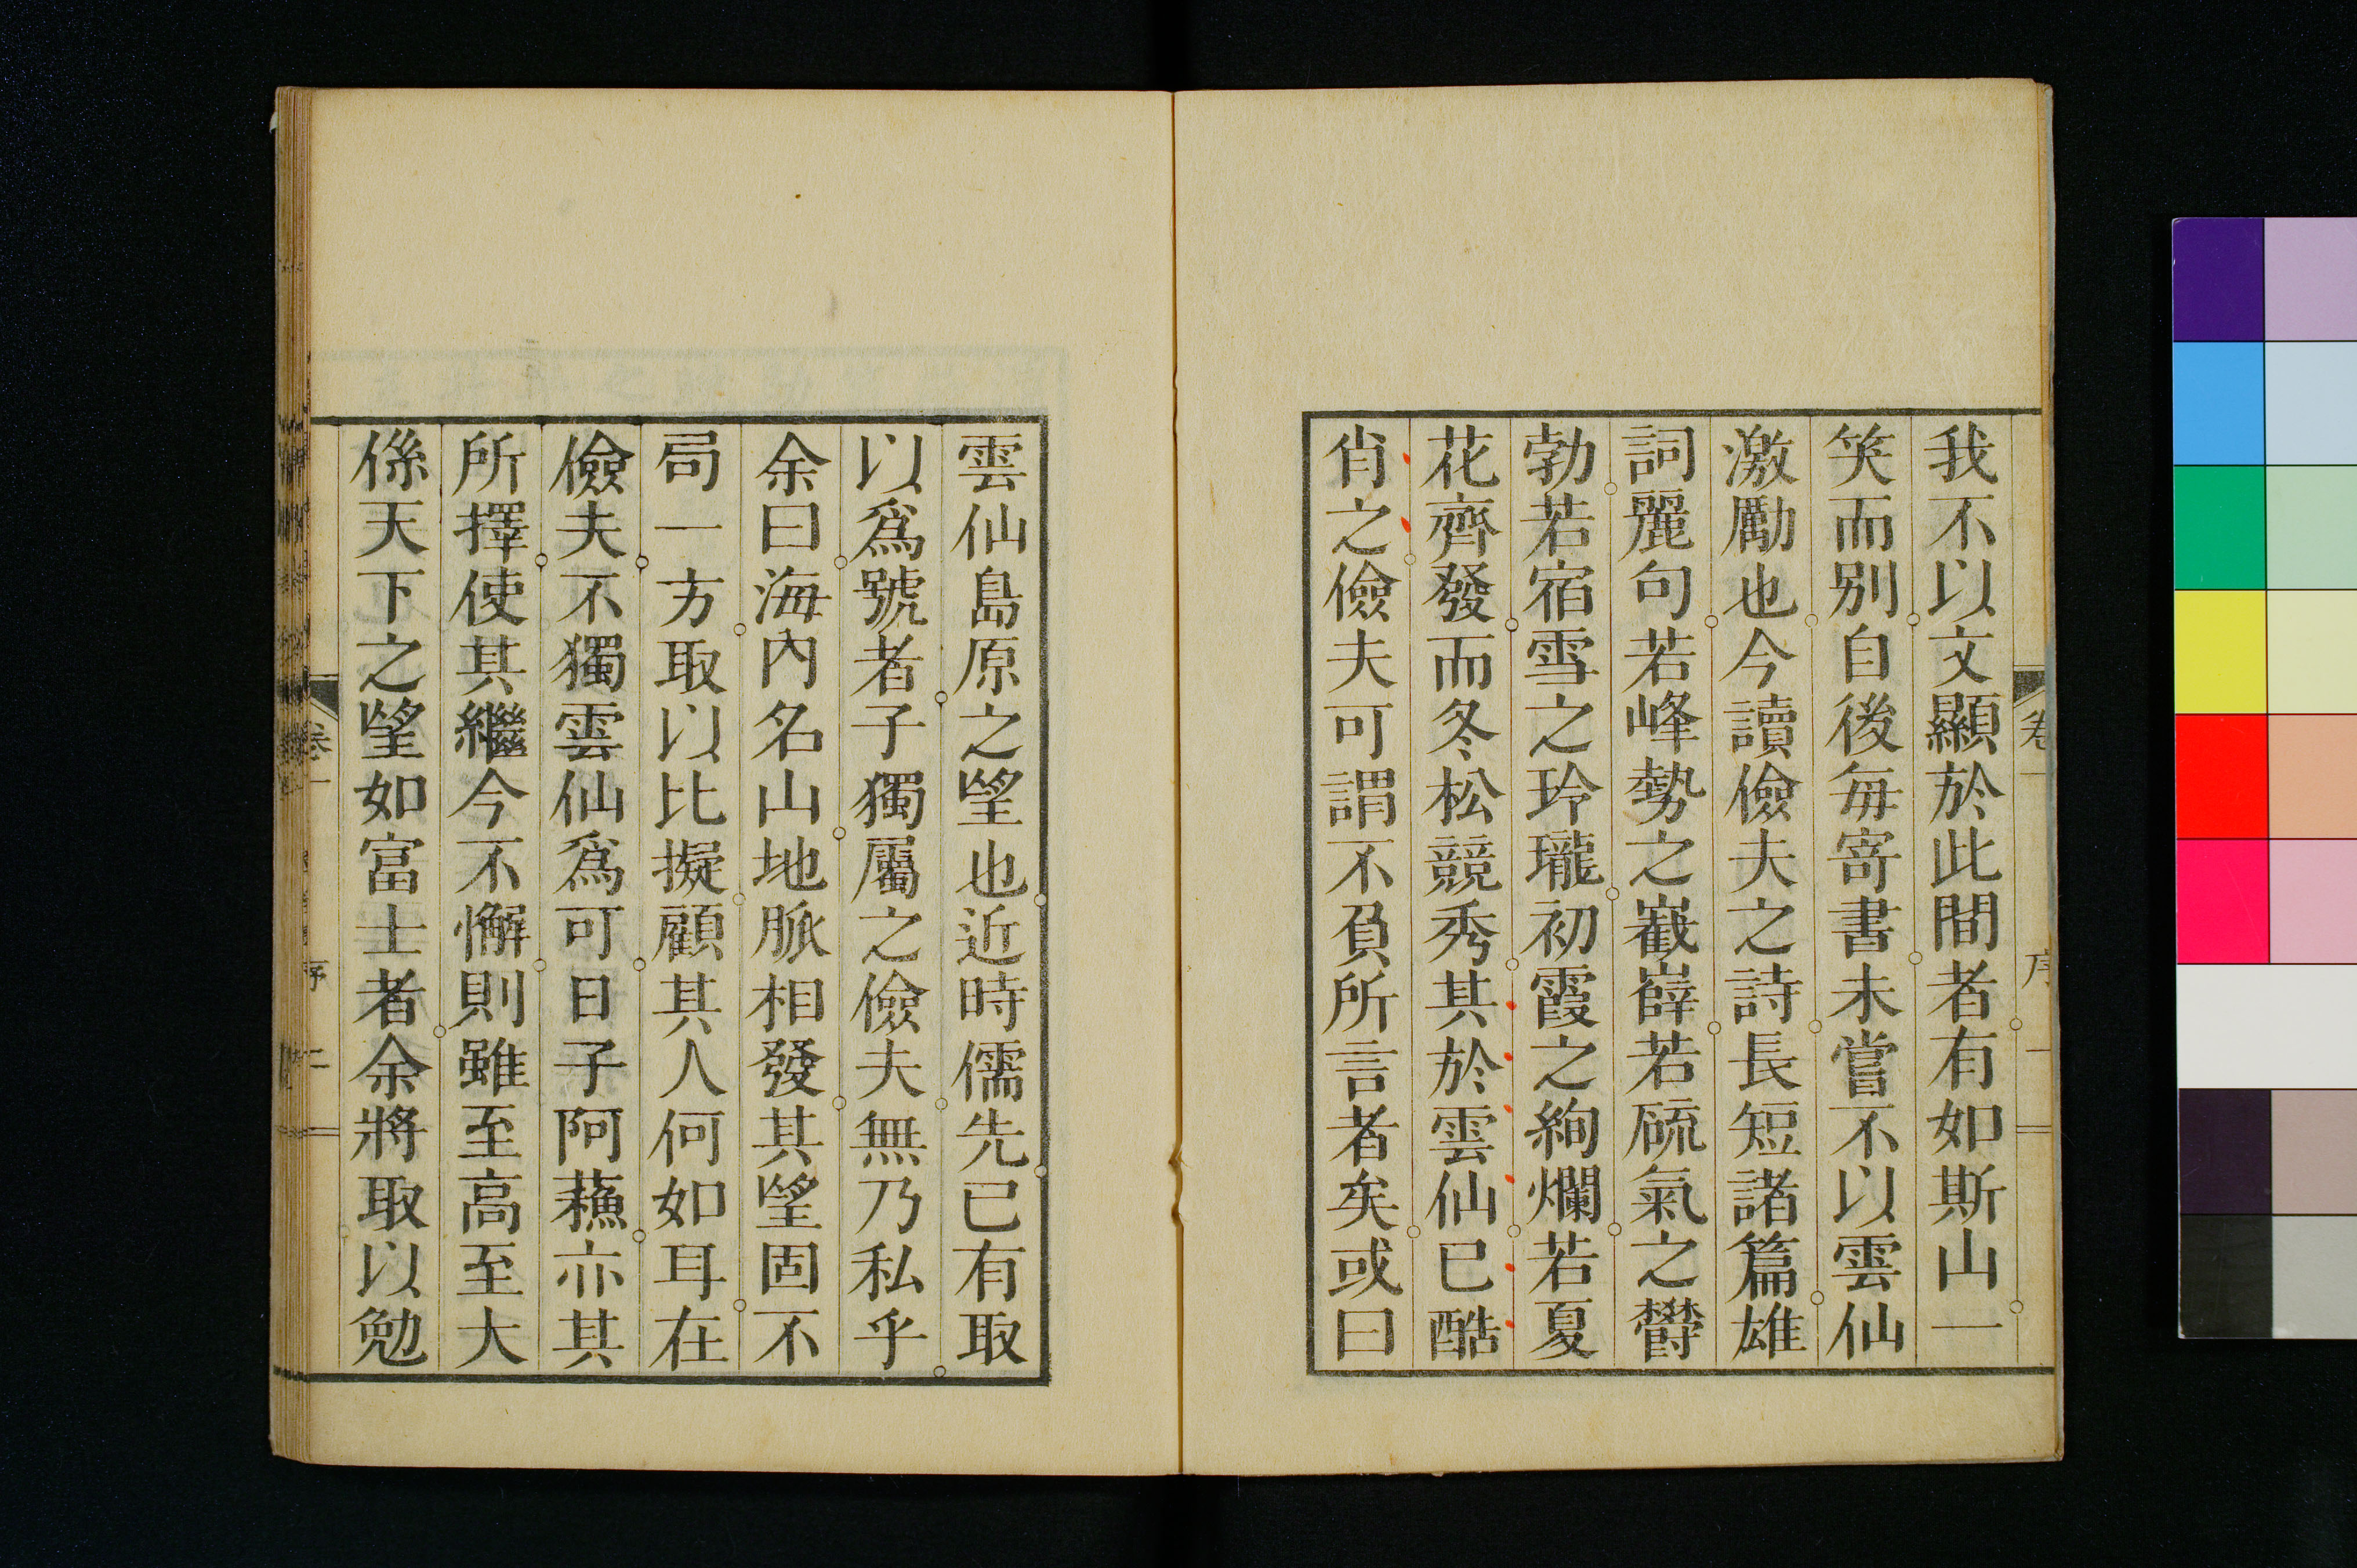 我不以文顯於此間者有如斯山一
笑而別自後每寄書未嘗不以雲仙
激勵也今讀儉夫之詩長短諸篇雄
詞麗句若峰勢之巀嶭若硫氣之欝
勃若宿雪之玲瓏初霞之絢爛若夏
花齊發而冬松競秀其於雲仙已酷
肖之儉夫可謂不負所言者矣或曰
雲仙島原之望也近時儒先已有取
以爲號者子獨屬之儉夫無乃私乎
余曰海內名山地脈相發其望固不
局一方取以比擬顧其人何如耳在
儉夫不獨雲仙爲可日子阿蘇亦其
所擇使其繼今不懈則雖至高至大
係天下之望如富士者余將取以勉
卷一
序
二